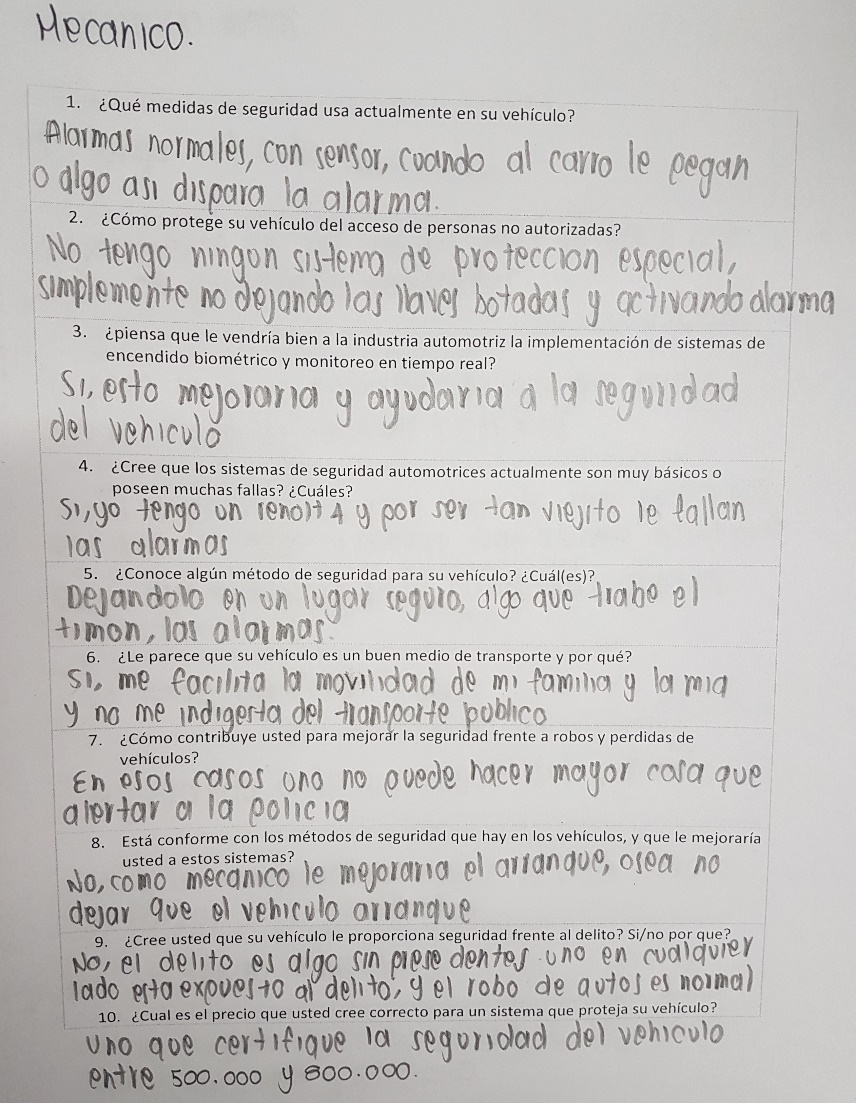 Mecanico.
1. ¿Qué medidas de seguridad usa actualmente en su vehículo?
Alarmas normales, con sensor, cuando al carro le pegan
o algo asi dispara la alarma.
2. ¿Cómo protege su vehículo del acceso de personas no autorizadas?
No tengo ningun sistema de proteccion especial,
simplemente no dejando las llaves botadas y activando alarma
3. ¿piensa que le vendría bien a la industria automotriz la implementación de sistemas de
encendido biométrico y monitoreo en tiempo real?
Si, esto mejoraria y ayudaria a la seguridad
del vehiculo
4. ¿Cree que los sistemas de seguridad automotrices actualmente son muy básicos o
poseen muchas fallas? ¿Cuáles?
Si, yo tengo un renolt 4 y por ser tan viejito le fallan
las alarmas
5. ¿Conoce algún método de seguridad para su vehículo? ¿Cuál(es)?
Dejandolo en un lugar seguro, algo que trabe el
timon, las alarmas.
6. ¿Le parece que su vehículo es un buen medio de transporte y por qué?
Si, me facilita la movilidad de mi familia y la mia
y no me indigesta del transporte publico
7. ¿Cómo contribuye usted para mejorar la seguridad frente a robos y perdidas de
vehículos?
En esos casos uno no puede hacer mayor cosa que
alertar a la policia
8. Está conforme con los métodos de seguridad que hay en los vehículos, y que le mejoraría
usted a estos sistemas?
No, como mecanico le mejoraria el arranque, osea no
dejar que el vehiculo arranque
9. ¿Cree usted que su vehículo le proporciona seguridad frente al delito? Si/no por que?
No, el delito es algo sin presedentes uno en cualquier
lado esta expuesto al delito, y el robo de autos es normal
10. ¿Cual es el precio que usted cree correcto para un sistema que proteja su vehículo?
Uno que certifique la seguridad del vehiculo
entre 500.000 y 800.000.